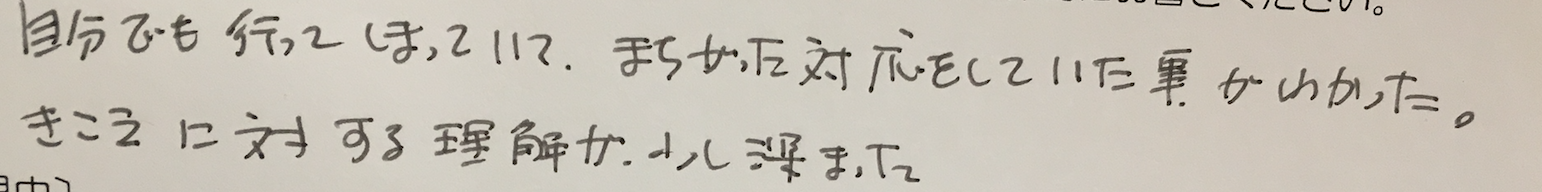 ください。
自分でも行ってしまっていて、まちがった対応をしていた事がわかった。
きこえに対する理解が少し深まった